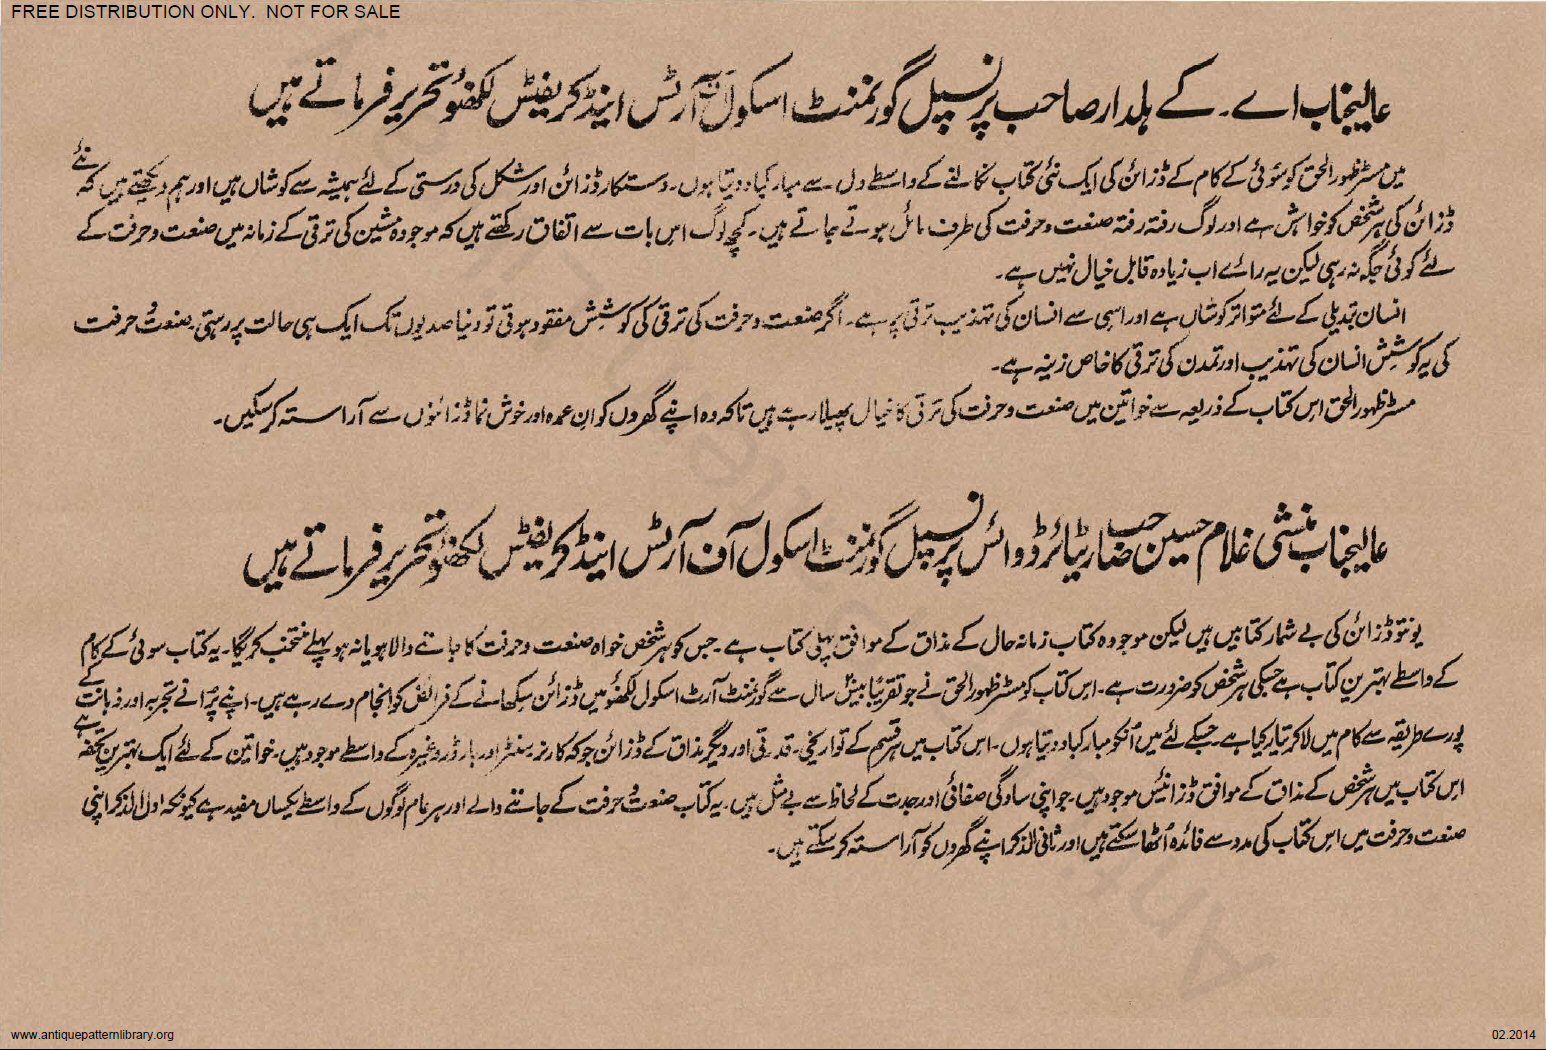 FREE DISTRIBUTION ONLY. NOT FOR SALE
عالیجناب اے۔ کے ہلدار صاحب پرنسپل گورنمنٹ اسکول آف آرٹس اینڈ کریفٹس لکھنؤ تحریر فرماتے ہیں
میں مسٹر ظہور الحق کو سوئی کے کام کے ڈزائن کی ایک نئی کتاب نکالنے کے واسطے دل سے مبارکباد دیتا ہوں۔ دستکار ڈزائن اور شکل کی درستی کے لئے ہمیشہ سے کوشاں ہیں اور ہم دیکھتے ہیں کہ نئے
ڈزائن کی ہر شخص کو خواہش ہے اور لوگ رفتہ رفتہ صنعت و حرفت کی طرف مائل ہوتے جاتے ہیں۔ کچھ لوگ اس بات سے اتفاق رکھتے ہیں کہ موجودہ مشین کی ترقی کے زمانہ میں صنعت و حرفت کے
لئے کوئی جگہ نہ رہی لیکن یہ رائے اب زیادہ قابل خیال نہیں ہے۔
انسان تبدیلی کے لئے متواتر کوشاں ہے اور اسی سے انسان کی تہذیب ترقی پر ہے۔ اگر صنعت و حرفت کی ترقی کی کوشش مفقود ہوتی تو دنیا صدیوں تک ایک ہی حالت پر رہتی۔ صنعت و حرفت
کی یہ کوشش انسان کی تہذیب اور تمدن کی ترقی کا خاص زینہ ہے۔
مسٹر ظہور الحق اس کتاب کے ذریعہ سے خواتین میں صنعت و حرفت کی ترقی کا خیال پھیلا رہے ہیں تاکہ وہ اپنے گھروں کو ان عمدہ اور خوش نما ڈزائنوں سے آراستہ کر سکیں۔
عالیجناب منشی غلام حسین صاحب ریٹائرڈ وائس پرنسپل گورنمنٹ اسکول آف آرٹس اینڈ کریفٹس لکھنؤ تحریر فرماتے ہیں
یوں تو ڈزائن کی بے شمار کتابیں ہیں لیکن موجودہ کتاب زمانہ حال کے مذاق کے موافق پہلی کتاب ہے۔ جس کو ہر شخص خواہ صنعت و حرفت کا جاننے والا ہو یا نہ ہو پہلے منتخب کریگا۔ یہ کتاب سوئی کے کام
کے واسطے بہترین کتاب ہے جسکی ہر شخص کو ضرورت ہے۔ اس کتاب کو مسٹر ظہور الحق نے جو تقریباً بیس سال سے گورنمنٹ آرٹ اسکول لکھنؤ میں ڈزائن سکھانے کے فرائض کو انجام دے رہے ہیں۔ اپنے پرانے تجربہ اور ذہانت کے
پورے طریقہ سے کام میں لا کر تیار کیا ہے۔ جسکے لئے میں اُنکو مبارکباد دیتا ہوں۔ اس کتاب میں ہر قسم کے تواریخی۔ قدرتی اور دیگر مذاق کے ڈزائن جو کہ کارنر۔ سنٹر اور بارڈر وغیرہ کے واسطے موجود ہیں۔ خواتین کے لئے ایک بہترین تحفہ ہے
اس کتاب میں ہر شخص کے مذاق کے موافق ڈزائنیں موجود ہیں۔ جو اپنی سادگی صفائی اور جدت کے لحاظ سے بے مثل ہیں۔ یہ کتاب صنعت و حرفت کے جاننے والے اور ہر عام لوگوں کے واسطے یکساں مفید ہے کیونکہ اول الذکر اپنی
صنعت و حرفت میں اس کتاب کی مدد سے فائدہ اُٹھا سکتے ہیں اور ثانی الذکر اپنے گھروں کو آراستہ کر سکتے ہیں۔
www.antiquepatternlibrary.org
02.2014